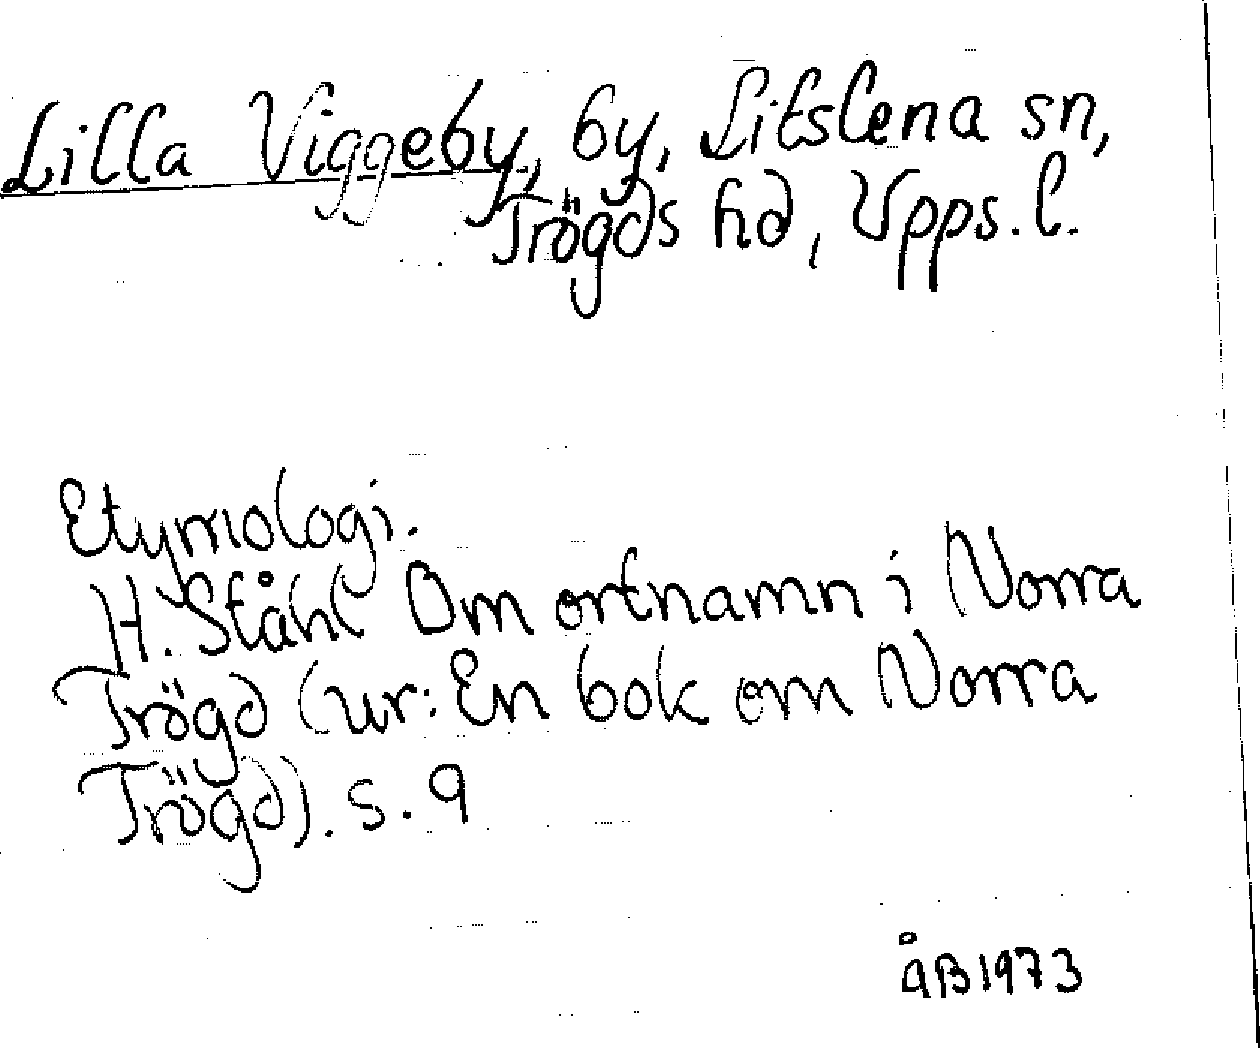 Lilla Viggeby, by, Litslena sn,
Trögds hd, Upps. l.
Etymologi.
H. Ståhl Om ortnamn i Norra
Trögd (ur: En bok om Norra
Trögd). s. 9
ÅB 1973